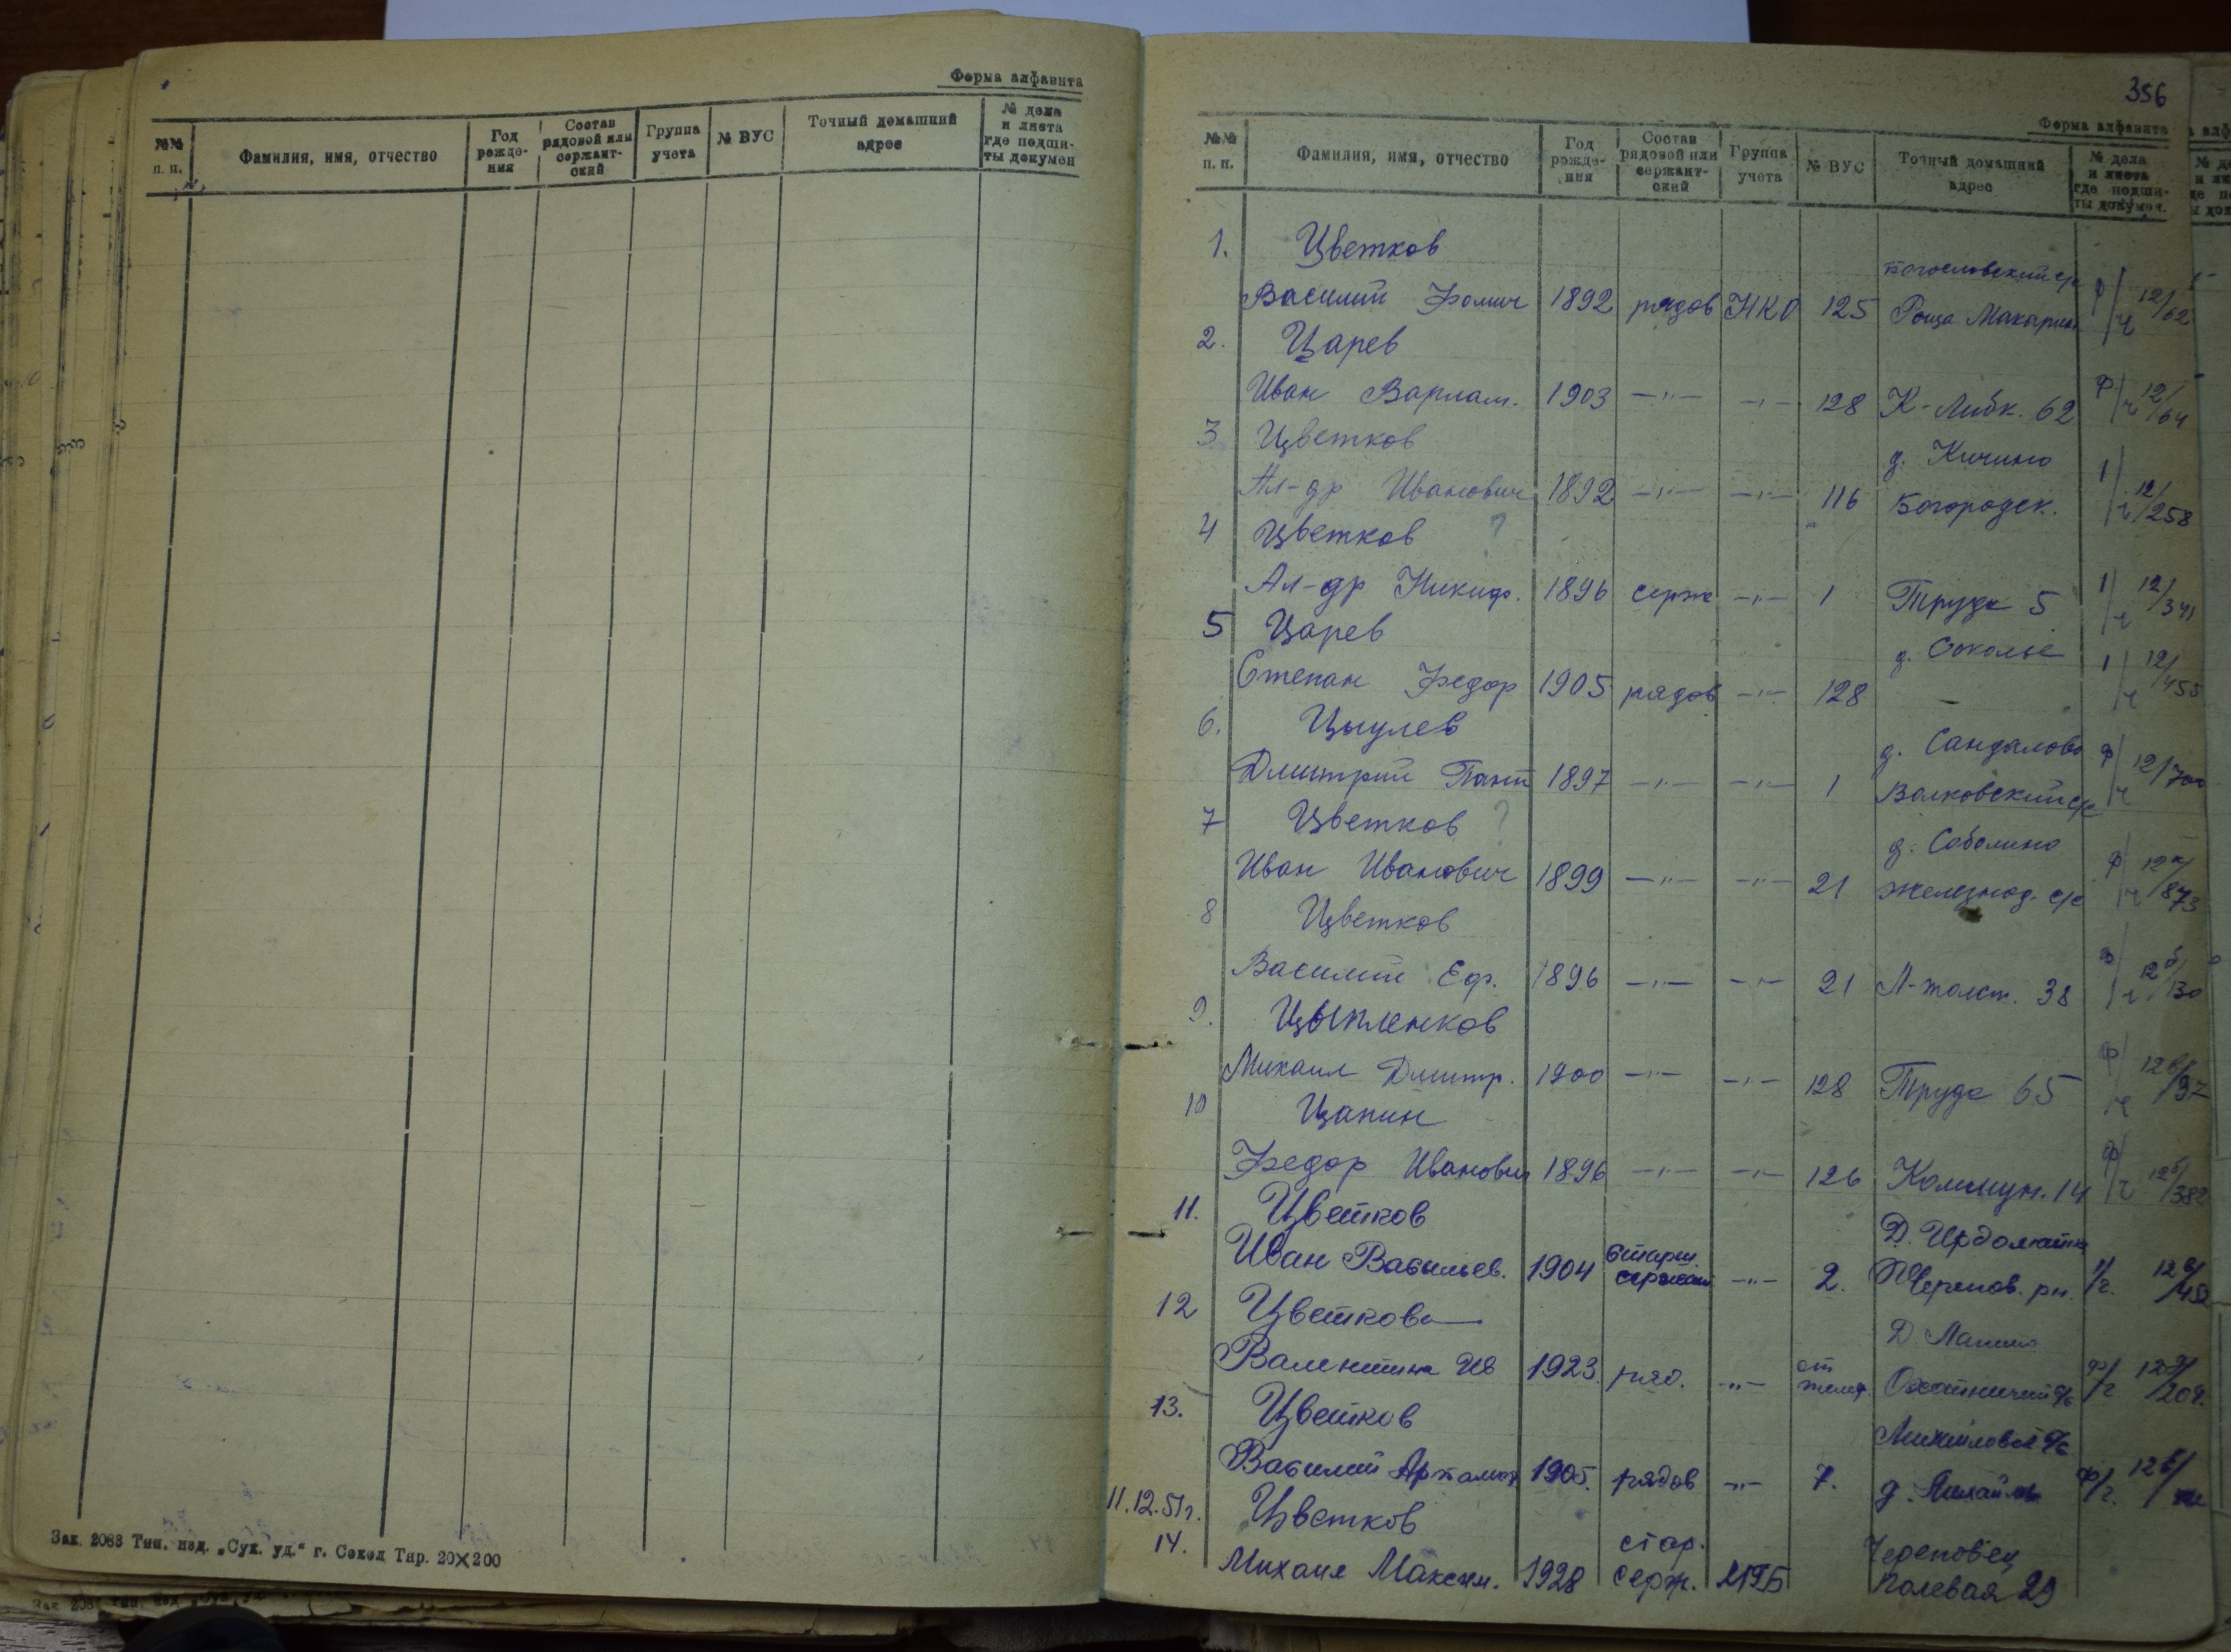 Форма алфавита
№№ п. п. Фамилия, имя, отчество Год рожде-ния Состав рядовой или сержант-ский Группа учета № ВУС Точный домашний адрес № дела и листа где подши-ты докумен
Зак. 2083 Тип. изд. „Сух. уд.“ г. Сокол Тир. 20×200
356
Форма алфавита
№№ п. п. Фамилия, имя, отчество Год рожде-ния Состав рядовой или сержант-ский Группа учета № ВУС Точный домашний адрес № дела и листа где подши-ты докумен.
1. Цветков Богословский с/с
Василий Фомич 1892 рядов НКО 125 Роща Макарин ф/ч 12/62
2. Царев
Иван Варлам. 1903 —"— —"— 128 К-Либк. 62 ф/ч 12/64
3 Цветков д. Кичино
Ал-др Иванович 1892 —"— —"— 116 Богородск. 1/ч 12/258
4 Цветков ?
Ал-др Никиф. 1896 серж —"— 1 Труда 5 1/ч 12/341
5 Царев д. Соколье
Степан Федор 1905 рядов —"— 128 — 1/ч 12/455
6. Цыулев д. Сандалово
Дмитрий Пант 1897 —"— —"— 1 Волковский с/с ф/ч 12/700
7 Цветков ? д. Соболино
Иван Иванович 1899 —"— —"— 21 Железнод. с/с ф/ч 12а/873
8 Цветков
Василий Еф. 1896 —"— —"— 21 Л-толст. 38 12б/130
9. Цыпленков
Михаил Дмитр. 1900 —"— —"— 128 Труда 65 ф/ч
10 Цапин
Федор Иванович 1896 —"— —"— 126 Коммун. 14 ф/ч 12б/382
11. Цветков Д. Ирдоматка
Иван Васильев. 1904 Старш. сержант —"— 2. Черепов. рн. 1/г.
12 Цветкова Д
Валентина Ив 1923. ряд. —"— ф/г
13. Цветков
Василий 1905. рядов —"— 7. д. ф/г.
11.12.51г. Цветков
14. стар. Череповец
Михаил Максим. 1928 серж. Полевая 29